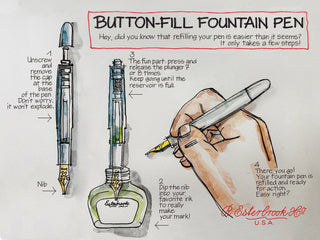 BUTTON-FILL FOUNTAIN PEN
Hey, did you know that refilling your pen is easier than it seems?
It only takes a few steps!
1
Unscrew
and
remove
the cap
at the
base
of the pen.
Don't worry,
it won't explode.
Nib
3
The fun part: press and
release the plunger 7
or 8 times.
Keep going until the
reservoir is full.
2
Dip the nib
into your
favorite ink
to really
make your
mark!
4
There you go!
Your fountain pen
is refilled and
ready for
action.
Easy right?
Esterbrook
U.S.A.